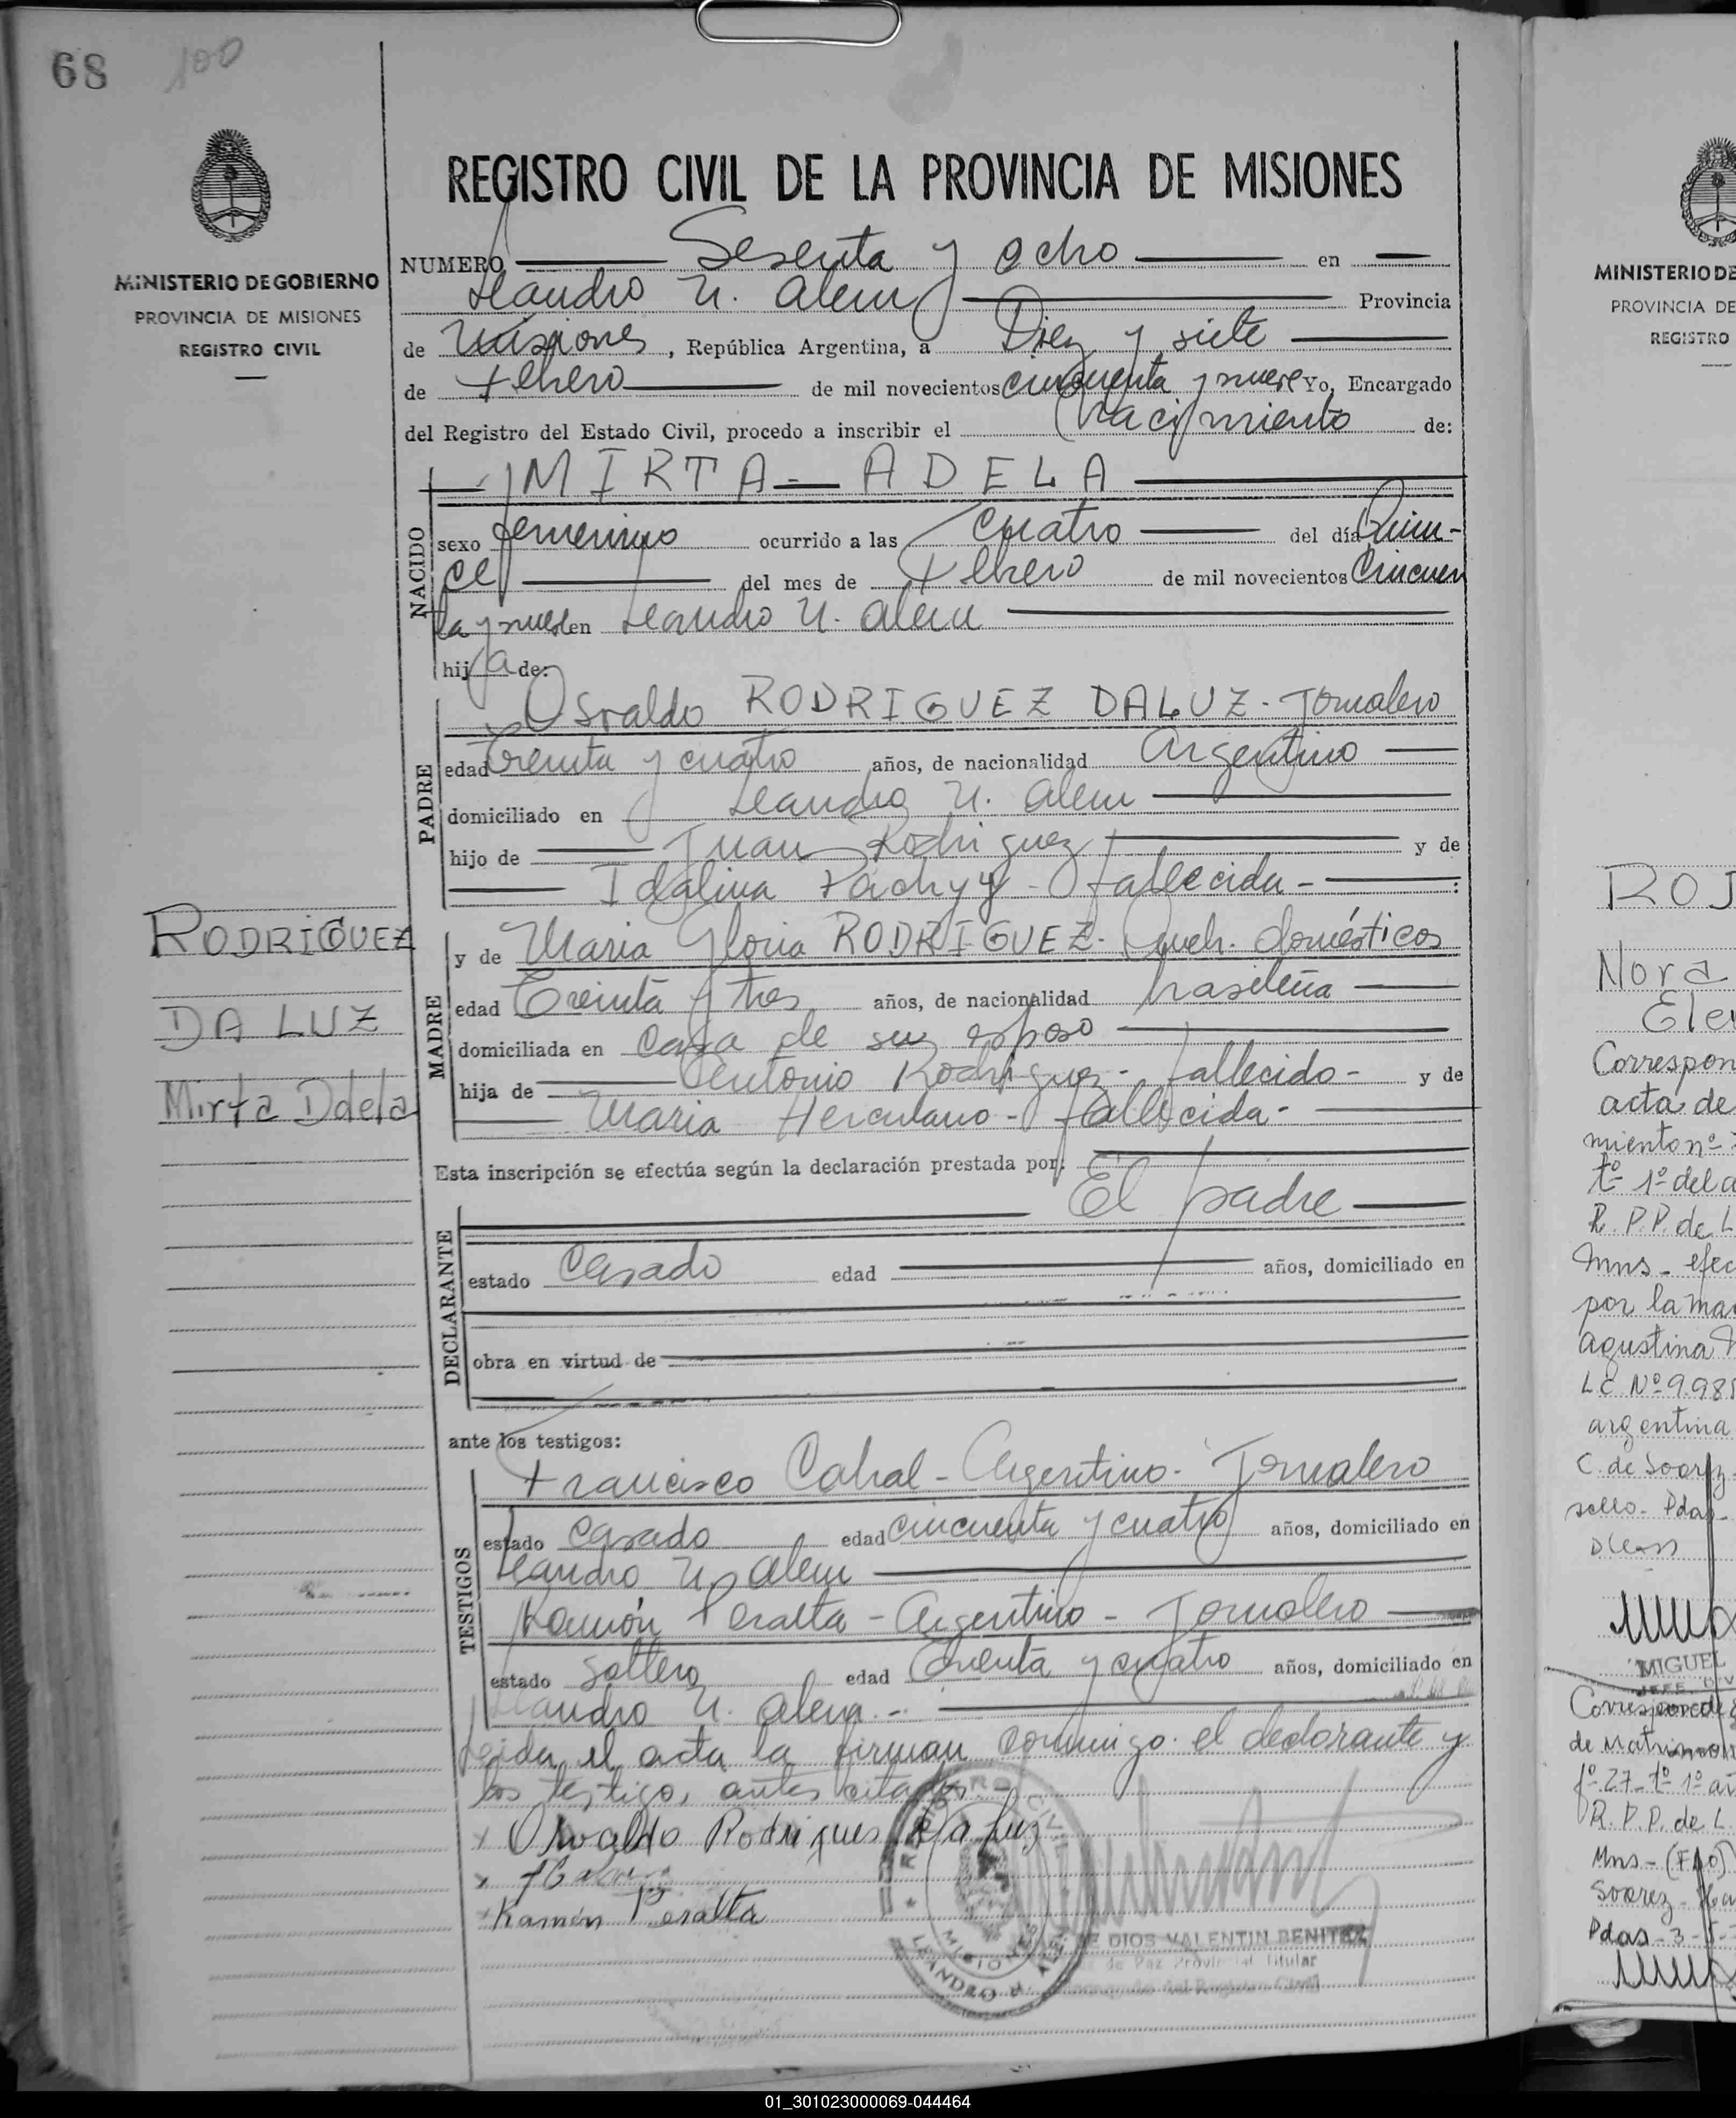 68 100
MINISTERIO DE GOBIERNO
PROVINCIA DE MISIONES
REGISTRO CIVIL
RODRIGUEZ
DA LUZ
Mirta Adela
REGISTRO CIVIL DE LA PROVINCIA DE MISIONES
NUMERO Sesenta y ocho en
Leandro N. Alem Provincia
de Misiones, República Argentina, a Diez y siete
de Febrero de mil novecientos cincuenta y nueve Yo, Encargado
del Registro del Estado Civil, procedo a inscribir el Nacimiento de:
NACIDO
MIRTA - ADELA
sexo femenino ocurrido a las cuatro del día Quin-
ce del mes de Febrero de mil novecientos Cincuen
ta y nueve en Leandro N. Alem
hija de:
PADRE
Osvaldo RODRIGUEZ DALUZ - Jornalero
edad Treinta y cuatro años, de nacionalidad Argentino
domiciliado en Leandro N. Alem
hijo de Juan Rodriguez y de
Idalina - fallecida - :
MADRE
y de Maria Gloria RODRIGUEZ - Queh. domésticos
edad Treinta y tres años, de nacionalidad brasileña
domiciliada en Casa de su esposo
hija de Antonio Rodriguez - fallecido - y de
Maria Herculano - fallecida -
Esta inscripción se efectúa según la declaración prestada por:
El padre
DECLARANTE
estado Casado edad años, domiciliado en
obra en virtud de
ante los testigos:
TESTIGOS
Francisco Cabral - Argentino - Jornalero
estado Casado edad cincuenta y cuatro años, domiciliado en
Leandro N. Alem
Ramón Peralta - Argentino - Jornalero
estado Soltero edad Treinta y cuatro años, domiciliado en
Leandro N. Alem. -
Leida el acta la firman conmigo el declarante y
los testigos antes citados
x Osvaldo Rodrigues Da Luz
x
x Ramón Peralta
REGISTRO CIVIL
MISIONES
LEANDRO N. ALEM
DE DIOS VALENTIN BENITEZ
de Paz Provincial Titular
Encargado del Registro Civil
MINISTERIO DE
PROVINCIA DE
REGISTRO
ROJ
Nora
Ele
Correspon
acta de
miento nº
tº 1º del a
R. P. P. de L
Mns - efec
por la mad
agustina
LC Nº 9.98
argentina
C. de Soarez
sello - Pdas -
MIGUEL
JEFE DIV
Corresponde
de Matrimon
fº 27 - tº 1º añ
R. P. P. de L.
Mns -
Soarez -
Pdas - 3 - 5 -
01_301023000069-044464